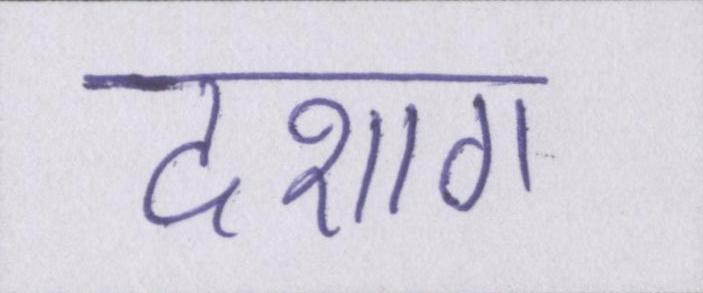 दशाग